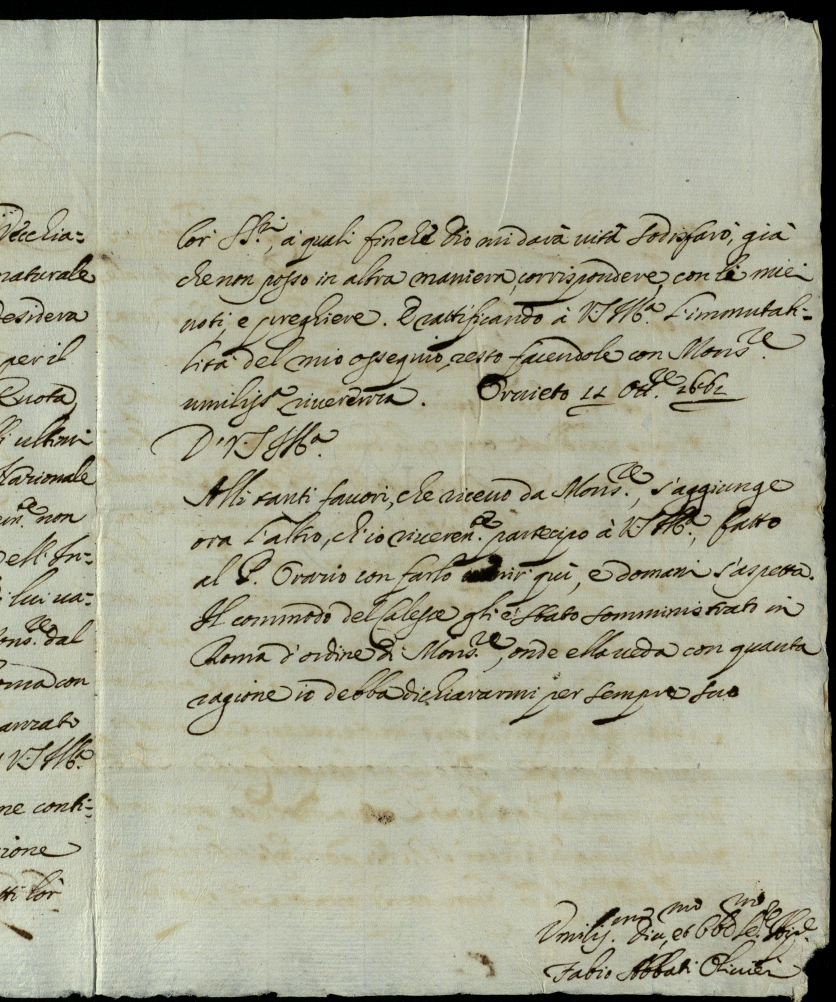 Vecchia=
naturale
desidera
per il
Ruota
ultimi
Nazionale
non
dell'In=
lui ua=
Mons.re dal
Roma con
auanzato
V.S. Ill.ma
ne conti=
zione
tti lor
lor SS.ri, a quali finche Dio mi darà uita sodisfarò, già
che non posso in altra maniera, corrispondere, con li miei
uoti, e preghiere. E rattificando à V.S. Ill.ma l'immutabi=
lità del mio ossequio, resto facendole con Mons.re
umiliss.a riuerenza. Oruieto 11 Ott.re 1661
D. V.S. Ill.ma
Alli tanti fauori, che riceuo da Mons.re, s'aggiunge
ora l'altro, ch'io riueren.te partecipo à V.S. Ill.ma, fatto
al P. Orazio con farlo uenir quì, e domani s'aspetta.
Il commodo del Calesse gli è stato somministrato in
Roma d'ordine di Mons.re, onde ella ueda con quanta
ragione io debba dichiararmi per sempre suo
Vmiliss.mo Diu.mo, et Obb.mo Se.re
Fabio Abbati Oliuieri